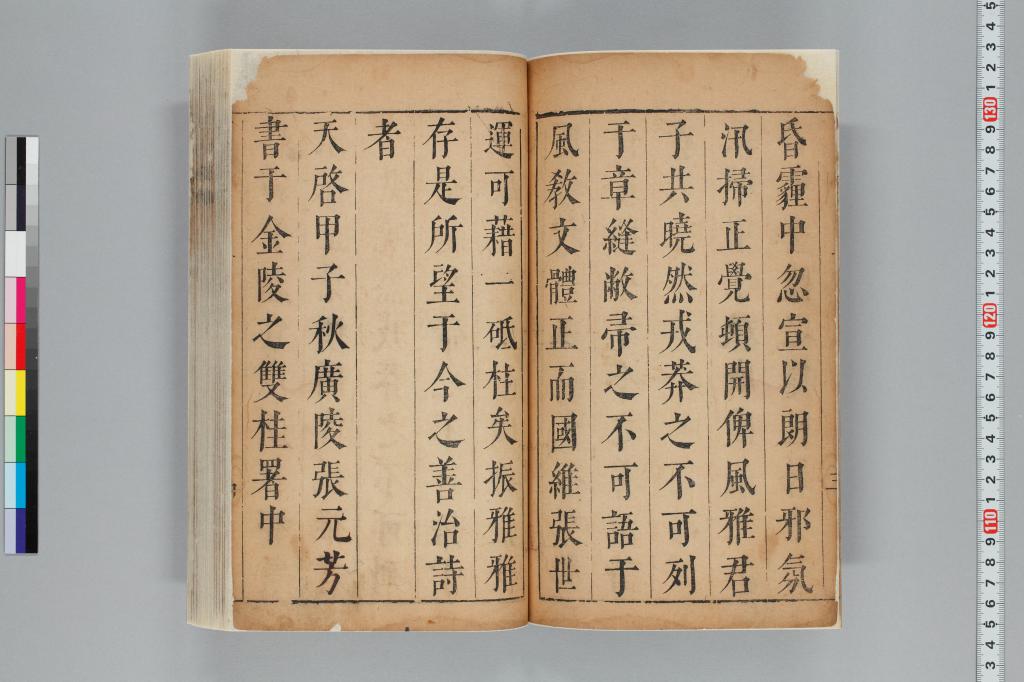 昏霾中忽宣以朗日邪氛
汛掃正覺頓開俾風雅君
子共曉然戎莽之不可列
于章縫敝帚之不可語于
風教文體正而國維張世
運可藉一砥柱矣振雅雅
存是所望于今之善治詩
者
天啓甲子秋廣陵張元芳
書于金陵之雙桂署中